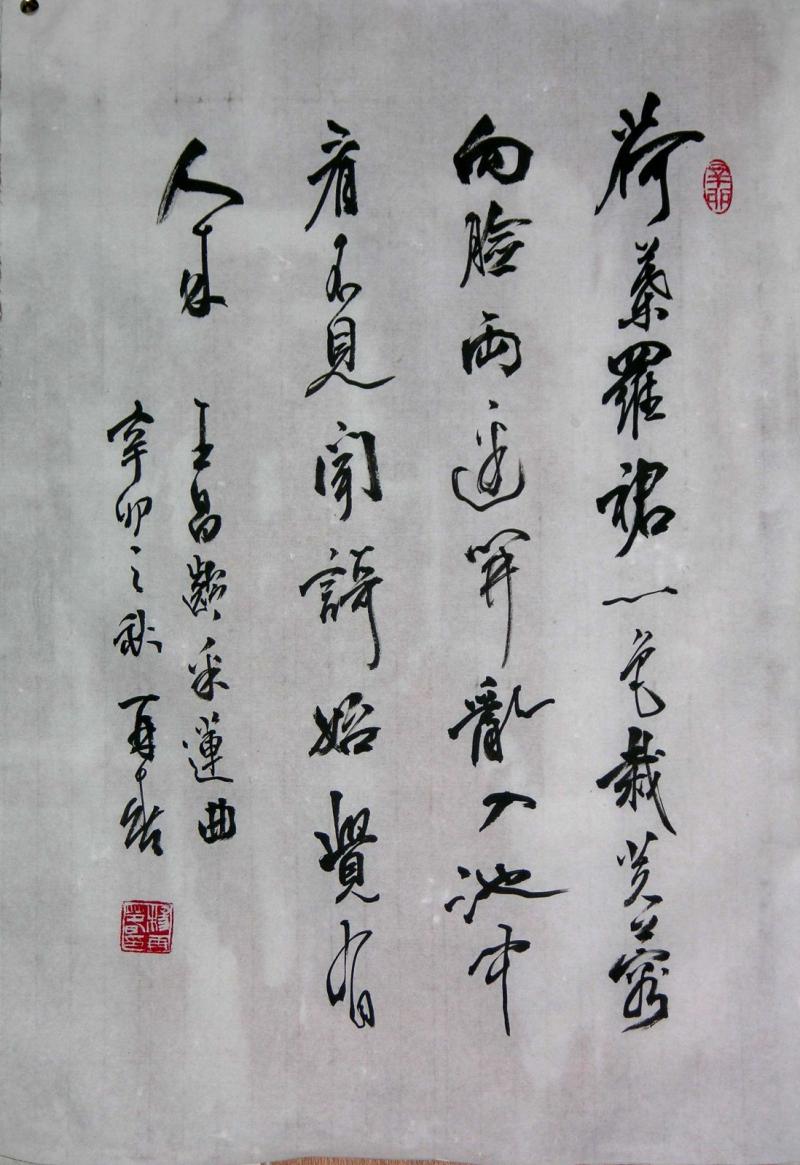 辛卯
荷葉羅裙一色裁芙蓉
向臉兩邊開亂入池中
看不見聞謌始覺有
人來
王昌齡采蓮曲
辛卯之秋 再春
楊再春印